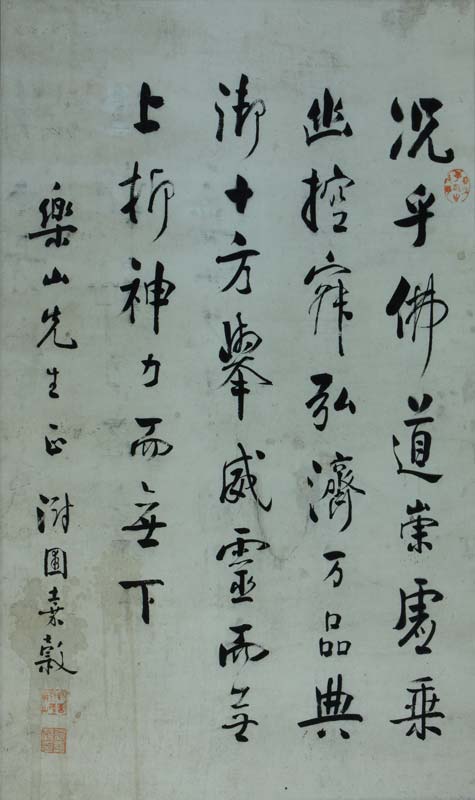 况乎佛道崇虛乘
幽控寂弘濟万品典
御十方舉威靈而無
上抑神力而無下
樂山先生正 澍圃嘉穀